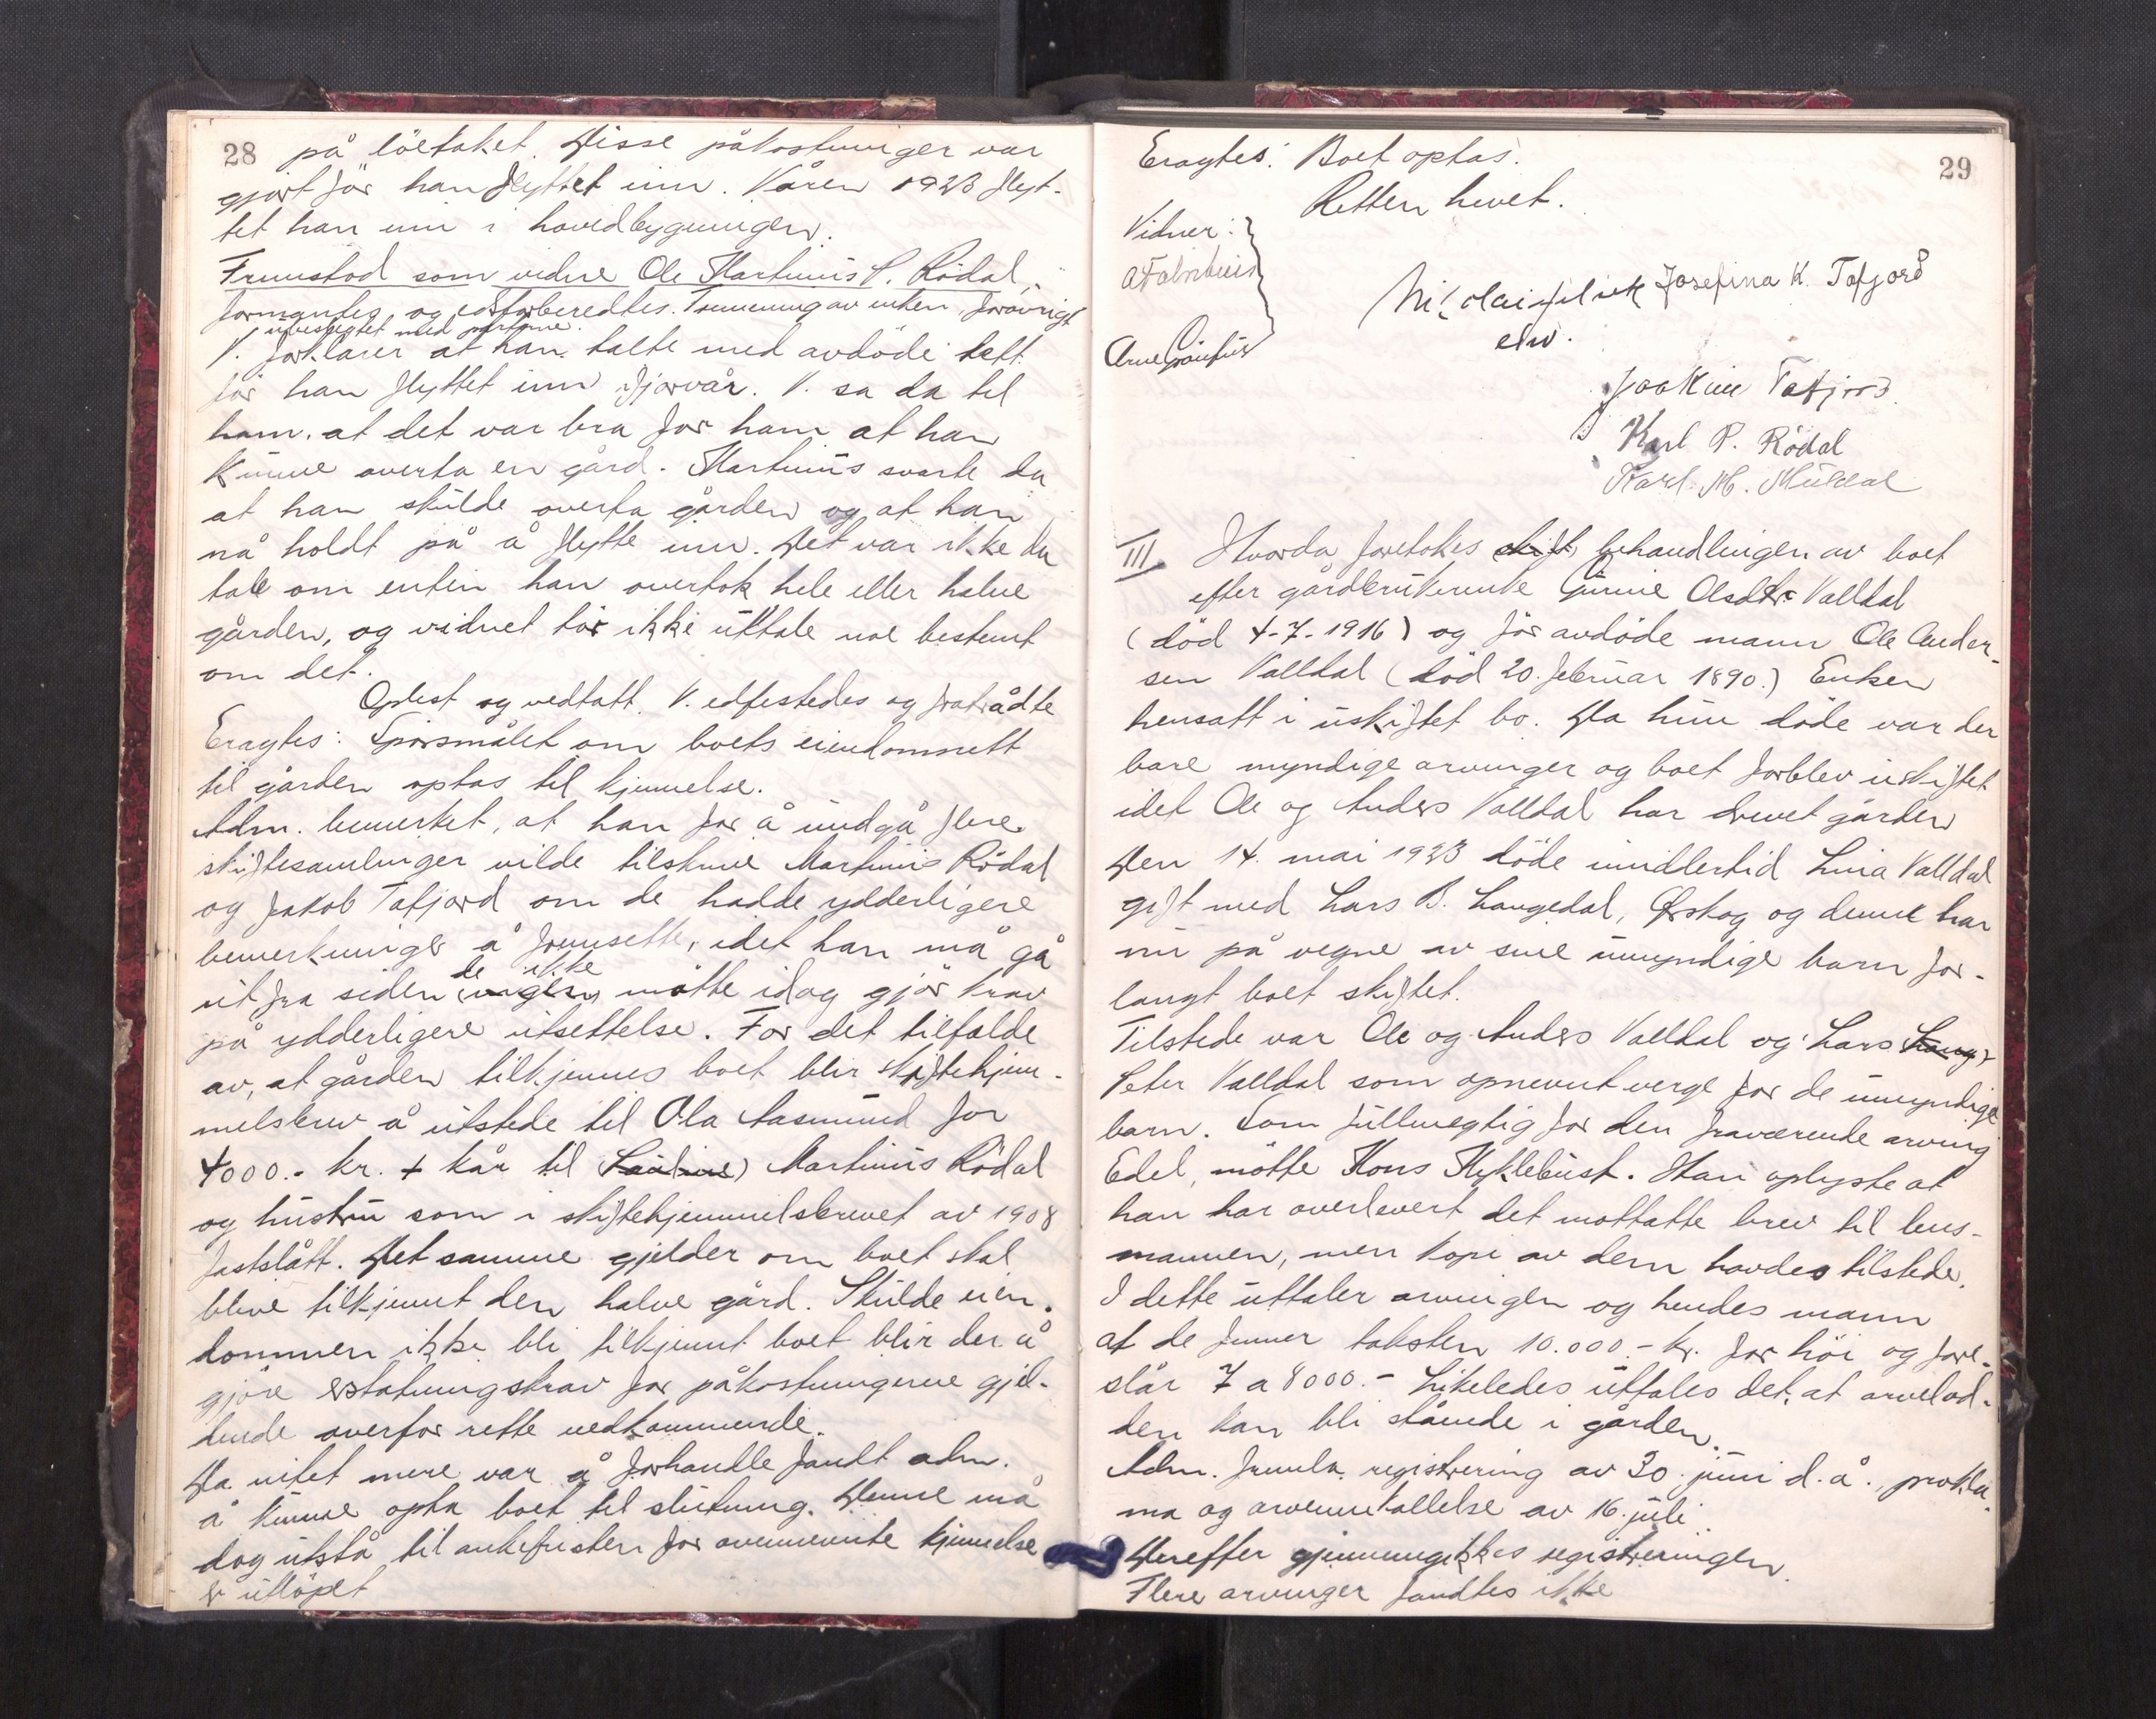 28 på löetaket. Disse påkostninger var
gjort för han flyttet inn. Våren 1923 flyt-
tet han inn i hovedbygningen.
Fremstod som vidne Ole Martinus P. Rödal,
formantes og edsforberedtes. Tremenning av enken, forövrigt
ubeslegtet med partene.
V. forklarer at han talte med avdöde tett
för han flyttet inn ifjorvår. V. sa da til
ham, at det var bra for ham at han
kunne overta en gård. Martinus svarte da
at han skulde overta gården og at han
nå holdt på å flytte inn. Det var ikke da
tale om enten han overtok hele eller halve
gården, og vidnet tör ikke uttale noe bestemt
om det.
Oplest og vedtatt. V. edfestedes og fratrådte
Eragtes: Spörsmålet om boets eiendomsrett
til gården optas til kjennelse.
Adm. bemerket, at han for å undgå flere
skiftesamlinger vilde tilskrive Martinus Rödal
og Jakob Tafjord om de hadde ydderligere
bemerkninger å fremsette, idet han må gå
ut fra siden de ikke mötte idag gjör krav
på ydderligere utsettelse. For det tilfelde
av, at gården tilkjennes boet blir skiftehjem-
melsbrev å utstede til Ola Aasmund for
4000.- kr. + kår til Martinus Rödal
og hustru som i skiftehjemmelsbrevet av 1908
fastslått. Det samme gjelder om boet skal
blive tilkjennt den halve gård. Skulde eien-
dommen ikke bli tilkjennt boet blir der å
gjöre erstatningskrav for påkostningerne gjel-
dende overfor rette vedkommende.
Da intet mere var å forhandle fandt adm.
å kunne opta boet til slutning. Denne må
dog utstå til ankefristen for ovennevnte kjennelse
er utlöpet
29
Eragtes: Boet optas.
Retten hevet.
Vidner:
Josefina K. Tafjord
Joakim Tafjord
Karl P. Rödal
Karl M. Muldal
III. Hvorda foretokes behandlingen av boet
efter gårdbrukerenke Gurine Olsdtr Valldal
(död 4-7-1916) og för avdöde mann Ole Ander-
sen Valldal (död 20. februar 1890.) Enken
hensatt i uskiftet bo. Da hun döde var der
bare myndige arvinger og boet forblev uskiftet
idet Ole og Anders Valldal har drevet gården
Den 14. mai 1923 döde imidlertid Lina Valldal
gift med Lars B. Langedal, Ørskog og denne har
nu på vegne av sine umyndige barn for-
langt boet skiftet.
Tilstede var Ole og Anders Valldal og Lars
Peter Valldal som opnevnt verge for de umyndige
barn. Som fullmegtig for den fraværende arving
Edel, mötte Hons Myklebust. Han oplyste at
han har overlevert det mottatte brev til lens-
mannen, men kopi av dem havdes tilstede.
I dette uttaler arvingen og hendes mann
at de finner taksten 10.000.- kr. for höi og fore-
slår 7 a 8000.- Likeledes uttales det, at arvelod-
den kan bli stående i gården.
Adm. fremla registrering av 30. juni d.å., prokla-
ma og arveinnkallelse av 16. juli
Derefter gjennemgikkes registreringen.
Flere arvinger fandtes ikke